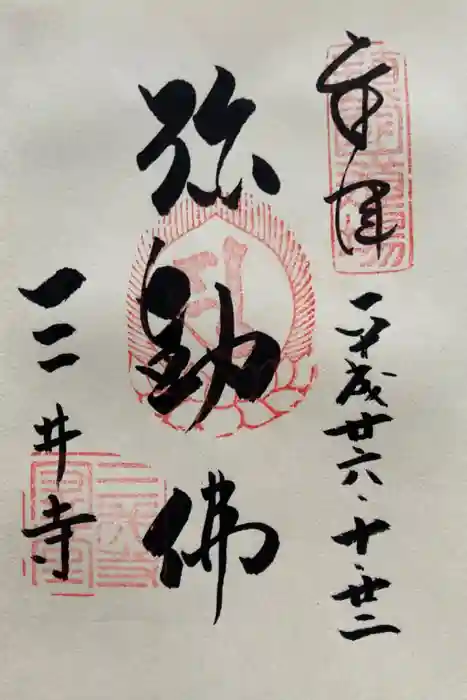 奉拝
平成廿六・十・廿二
弥勒佛
三井寺